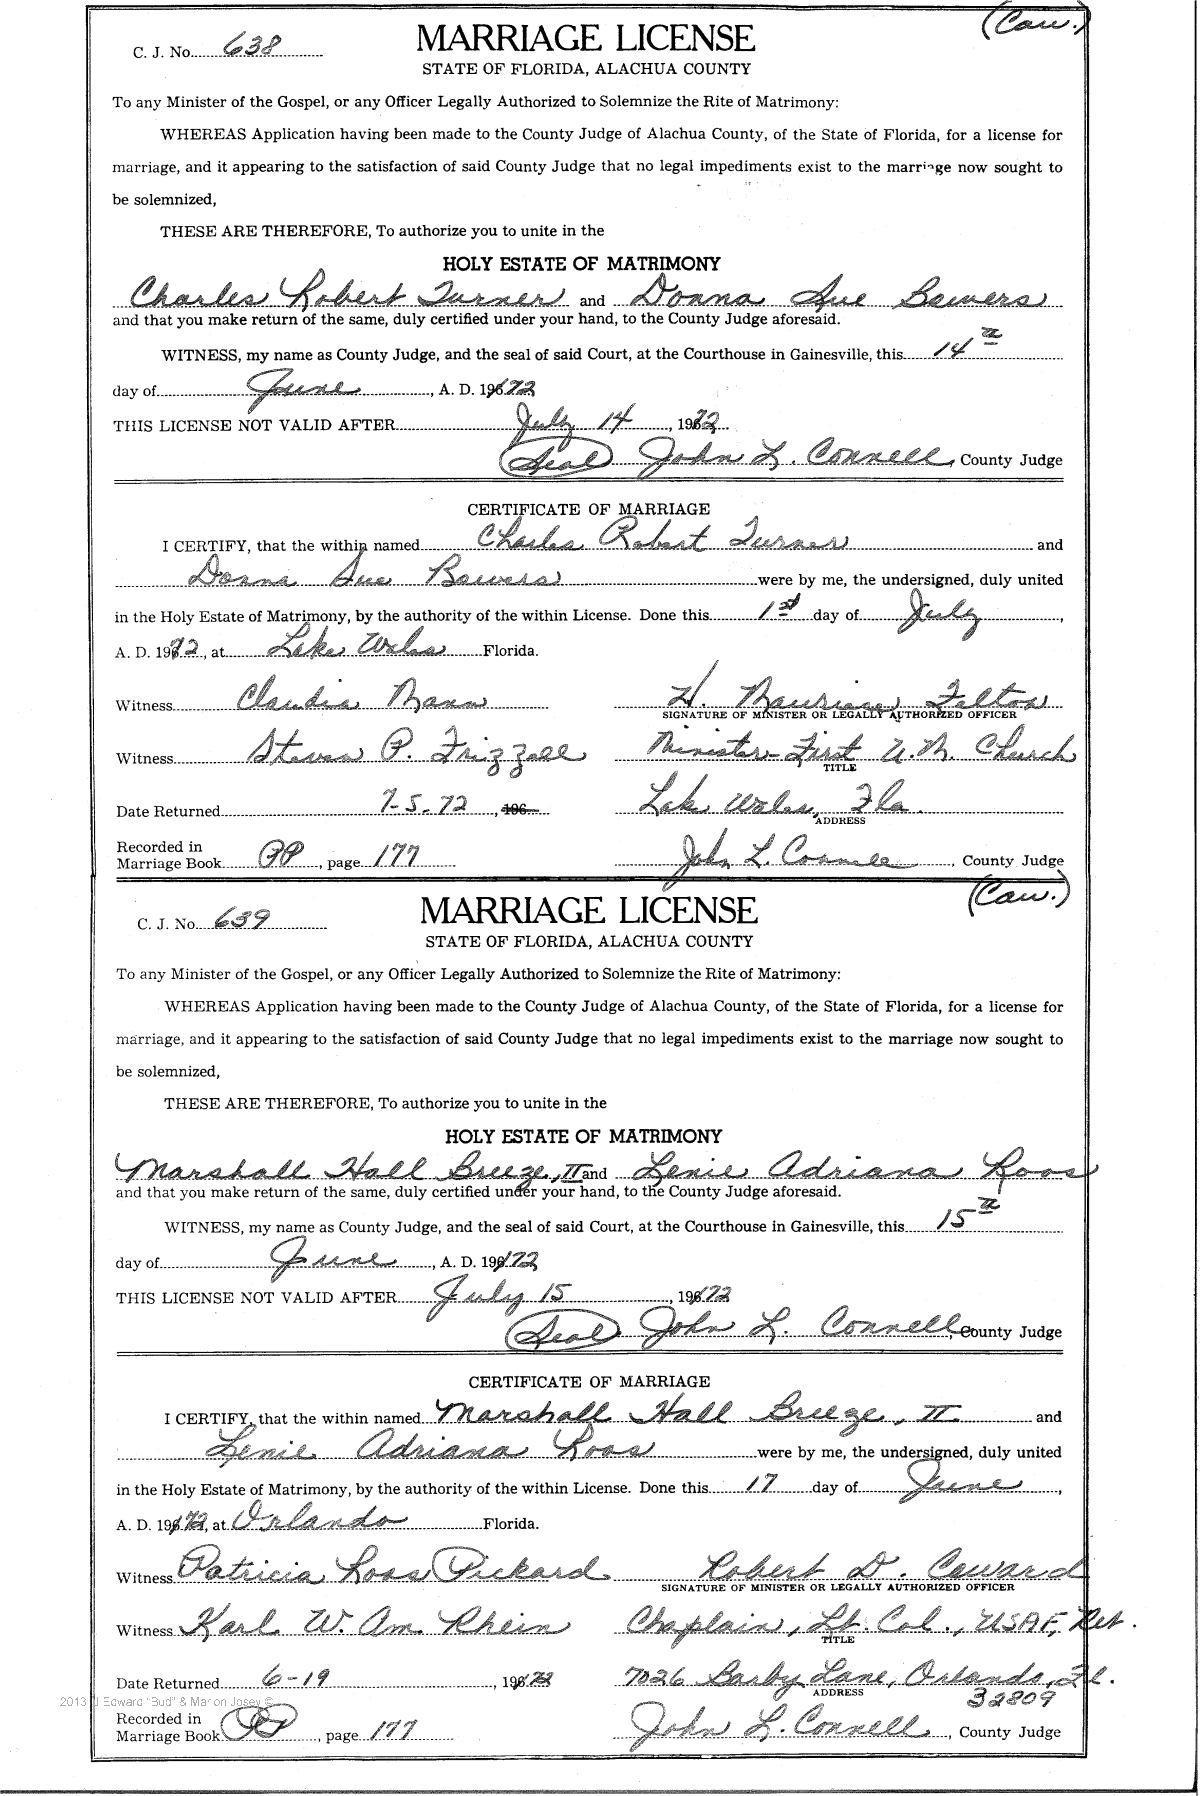 (Cau.)
C. J. No. 638 MARRIAGE LICENSE
STATE OF FLORIDA, ALACHUA COUNTY
To any Minister of the Gospel, or any Officer Legally Authorized to Solemnize the Rite of Matrimony:
WHEREAS Application having been made to the County Judge of Alachua County, of the State of Florida, for a license for
marriage, and it appearing to the satisfaction of said County Judge that no legal impediments exist to the marriage now sought to
be solemnized,
THESE ARE THEREFORE, To authorize you to unite in the
HOLY ESTATE OF MATRIMONY
Charles Robert Turner and Donna Sue Bowers
and that you make return of the same, duly certified under your hand, to the County Judge aforesaid.
WITNESS, my name as County Judge, and the seal of said Court, at the Courthouse in Gainesville, this 14th
day of June, A. D. 1972
THIS LICENSE NOT VALID AFTER July 14, 1972
(Seal) John L. Connell, County Judge
CERTIFICATE OF MARRIAGE
I CERTIFY, that the within named Charles Robert Turner and
Donna Sue Bowers were by me, the undersigned, duly united
in the Holy Estate of Matrimony, by the authority of the within License. Done this 1st day of July,
A. D. 1972, at Lake Wales Florida.
Witness Claudia Mann H. Maurice Felton
SIGNATURE OF MINISTER OR LEGALLY AUTHORIZED OFFICER
Witness Steven P. Frizzell Minister-First U.M. Church
TITLE
Date Returned 7-5-72, 196 Lake Wales, Fla.
ADDRESS
Recorded in
Marriage Book PP, page 177 John L. Connell, County Judge
(Cau.)
C. J. No. 639 MARRIAGE LICENSE
STATE OF FLORIDA, ALACHUA COUNTY
To any Minister of the Gospel, or any Officer Legally Authorized to Solemnize the Rite of Matrimony:
WHEREAS Application having been made to the County Judge of Alachua County, of the State of Florida, for a license for
marriage, and it appearing to the satisfaction of said County Judge that no legal impediments exist to the marriage now sought to
be solemnized,
THESE ARE THEREFORE, To authorize you to unite in the
HOLY ESTATE OF MATRIMONY
Marshall Hall Breeze, II and Lenie Adriana Roos
and that you make return of the same, duly certified under your hand, to the County Judge aforesaid.
WITNESS, my name as County Judge, and the seal of said Court, at the Courthouse in Gainesville, this 15th
day of June, A. D. 1972
THIS LICENSE NOT VALID AFTER July 15, 1972
(Seal) John L. Connell, County Judge
CERTIFICATE OF MARRIAGE
I CERTIFY, that the within named Marshall Hall Breeze, II and
Lenie Adriana Roos were by me, the undersigned, duly united
in the Holy Estate of Matrimony, by the authority of the within License. Done this 17 day of June,
A. D. 1972, at Orlando Florida.
Witness Patricia Roos Pickard Robert D. Coward
SIGNATURE OF MINISTER OR LEGALLY AUTHORIZED OFFICER
Witness Karl W. Am. Rhein Chaplain, Lt. Col., USAF, Ret.
TITLE
Date Returned 6-19 1972 7026 Barby Lane, Orlando, Fl.
ADDRESS 32809
2013 J Edward "Bud" & Marion Josey ©
Recorded in
Marriage Book PP, page 177 John L. Connell, County Judge